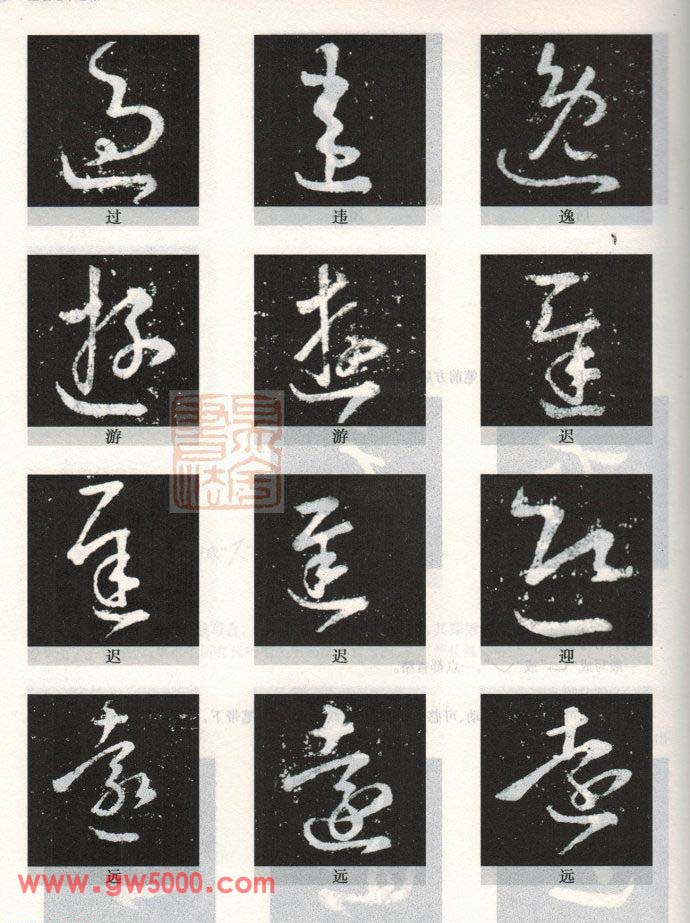 过 违 逸
游 游 迟
迟 迟 迎
远 远 远
www.gw5000.com